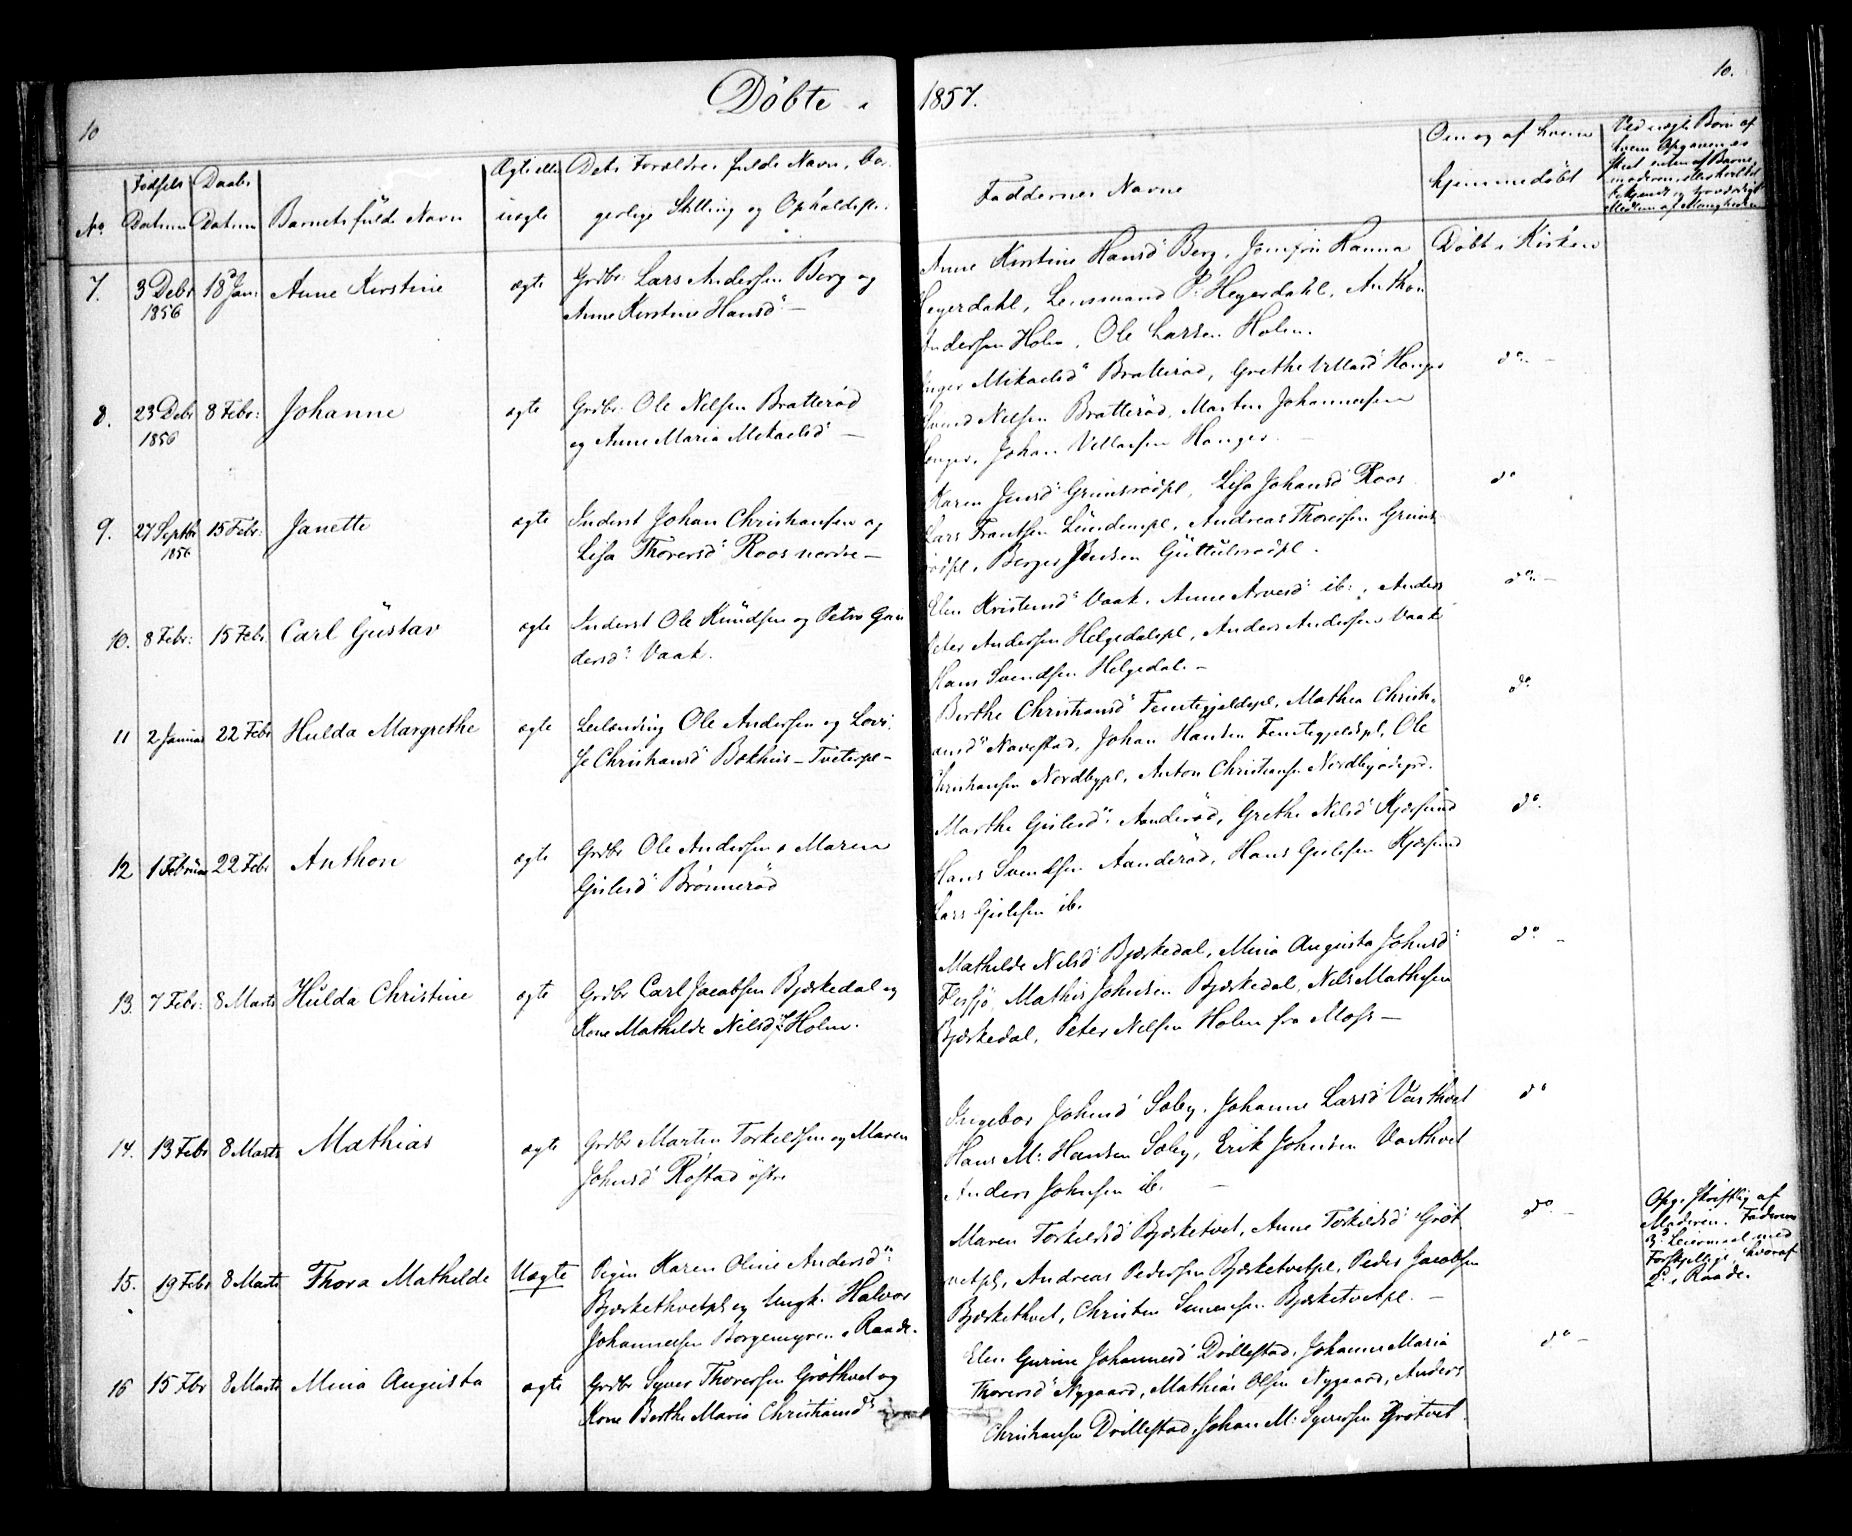 Døbte i 1857.
10
10.
No
Fødsels Datum
Daabs Datum
Barnets fulde Navn
Ægte eller uægte
Dets Forældres fulde Navn, Bor-
gerlige Stilling og Opholdsst.
Faddernes Navne
Om og af hvem
hjemmedøbt
Ved uægte Børn af
hvem Opgaven er
skeet enten af Barne-
moderen, eller hvilket
bekjendt og troværdigt
Medlem af Menigheden
7. 3 Debr 18d Jan: Anne Kirstine ægte Grdbr. Lars Andersen Berg og
1856 Anne Kirstine Hansd: –
Anne Kirstine Hansd Berg, Jomfru Hanna
Heyerdahl, Lensmand P. Heyerdahl, Anthon
Andersen Holm, Ole Larsen Holm.
Døbt i Kirken
8. 23 Debr 8 Febr: Johanne ægte Grdbr. Ole Nelsen Bratterød
1856 og Anne Maria Mekaelsd: –
Inger Mikaelsd: Bratterød, Grethe Villasd Hanger
Svend Nelsen Bratterød, Marten Johannesen
Hanger, Johan Villassen Hanger. –
do –
9. 27 Septbr 15 Febr: Janette ægte Inderst Johan Christiansen og
1856 Lisa Thorersd: Roos nordre –
Karen Jensd: Grimsrødpl, Lisa Johansd Roos
Lars Frantsen Lundempl, Andreas Thoresen Grims-
rødpl, Berger Jensen Guttulsrødpl.
do
10. 8 Febr: 15 Febr Carl Gustav ægte Inderst Ole Knudsen og Petra Gun
dersd: Vaak.
Elen Kristensd: Vaak, Anne Arvesd ib:, Anders
Peter Andersen Helgedalspl, Anders Andersen Vaak
Hans Svendsen Helgedal. –
do –
11 2 Januar 22 Febr Hulda Margrethe ægte Leilending Ole Andersen og Lovi-
se Christiansd: Bakhus – Tveterpl –
Berthe Christiansd: Femtegjeldspl, Mathea Christi-
ansd: Navestad, Johan Hansen Femtegjeldspl, Ole
Christiansen Nordbypl, Anton Christiansen Nordbyødegrd.
do
12 1 Februar 22 Febr Anthon ægte Grdbr Ole Andersen o Maren
Gislesd: Brønnerød
Marthe Gislesd: Aanderød, Grethe Nilsd Kjærsund
Hans Svendsen Aanderød, Hans Gislesen Kjærsund
Lars Gislesen ib.
do.
13. 7 Febr: 8 Marts Hulda Christine ægte Grdbr Carl Jacobsen Bjærkedal og
Kone Mathilde Nilsd: f. Holm.
Mathilde Nilsd: Bjærkedal, Mina Augusta Johnsd:
Mathis Johnsen Bjærkedal, Nils Mathisen
Bjærkedal, Peter Nelsen Holm fra Moss –
do –
14. 13 Febr 8 Marts Mathias ægte Grdbr Marten Torkelsen og Maren
Johnsd: Røstad østre
Ingebor Johnsd Soby, Johanne Larsd: Vasthvet
Hans M: Hansen Soby, Erik Johnsen Vasthvet
Anders Johnsen ib. –
do
15. 19 Febr 8 Marts Thora Mathilde Uægte Pigen Karen Oline Andersd:
Bjærkethvetpl og Ungk: Halvor
Johannesen Borgemyren i Raade.
Maren Torkelsd Bjærketvet, Anne Torkelsd: Grøt
vetpl, Andreas Pedersen Bjærketvetpl, Peder Jacobsen
Bjærkethvet, Christen Simensen Bjærketvetpl. –
do –
Opg. skriftlig af
Moderen. Faderens
3d Leiermaal med
Forskjellige, hvoraf
2de i Raade.
16 15 Fbr 8 Marts Mina Augusta ægte Grdbr Syver Thorersen Grøthvet og
Kone Berthe Maria Christiansd:
Elen Gurine Johannesd Drillestad, Johanne Maria
Thorersd: Nygaard, Mathias Olsen Nygaard, Anders
Christiansen Drillestad, Johan M: Syversen Grøtvet.
do –